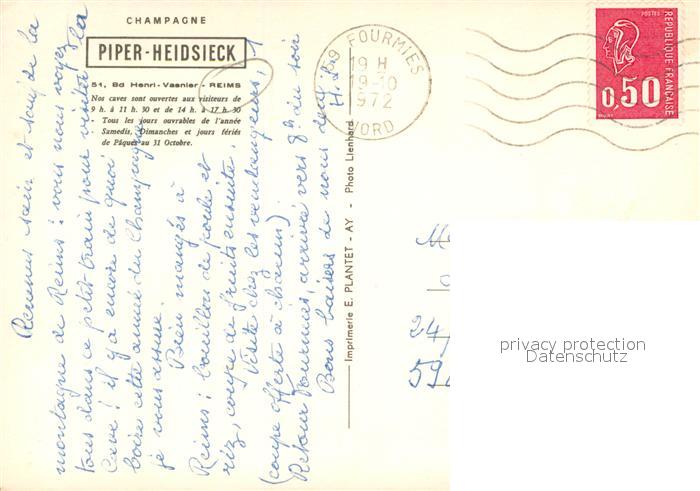 CHAMPAGNE
PIPER-HEIDSIECK
51, Bd Henri-Vasnier - REIMS
Nos caves sont ouvertes aux visiteurs de
9 h. à 11 h. 30 et de 14 h. à 17 h. 30
Tous les jours ouvrables de l'année
Samedis, Dimanches et jours fériés
de Pâques au 31 Octobre.
Revenus sain et sauf de la
montagne de Reims : vous nous voyez
tous dans ce petit train pour visiter la
Cave ! il y a encore de quoi
boire cette année du Champagne
je vous assure.
Bien mangés à
Reims : bouillon de poule et
riz, coupe de fruits ensuite.
Visite chez les vendangeurs, 1
(coupe offerte à chacun).
Retour Fourmies, arrivée vers 8h du soir
Bons baisers de nous deux
Imprimerie E. PLANTET - AY - Photo Lienhard
59 FOURMIES
19 H
19-10
1972
NORD
POSTES
RÉPUBLIQUE FRANÇAISE
0,50
24
59
privacy protection
Datenschutz